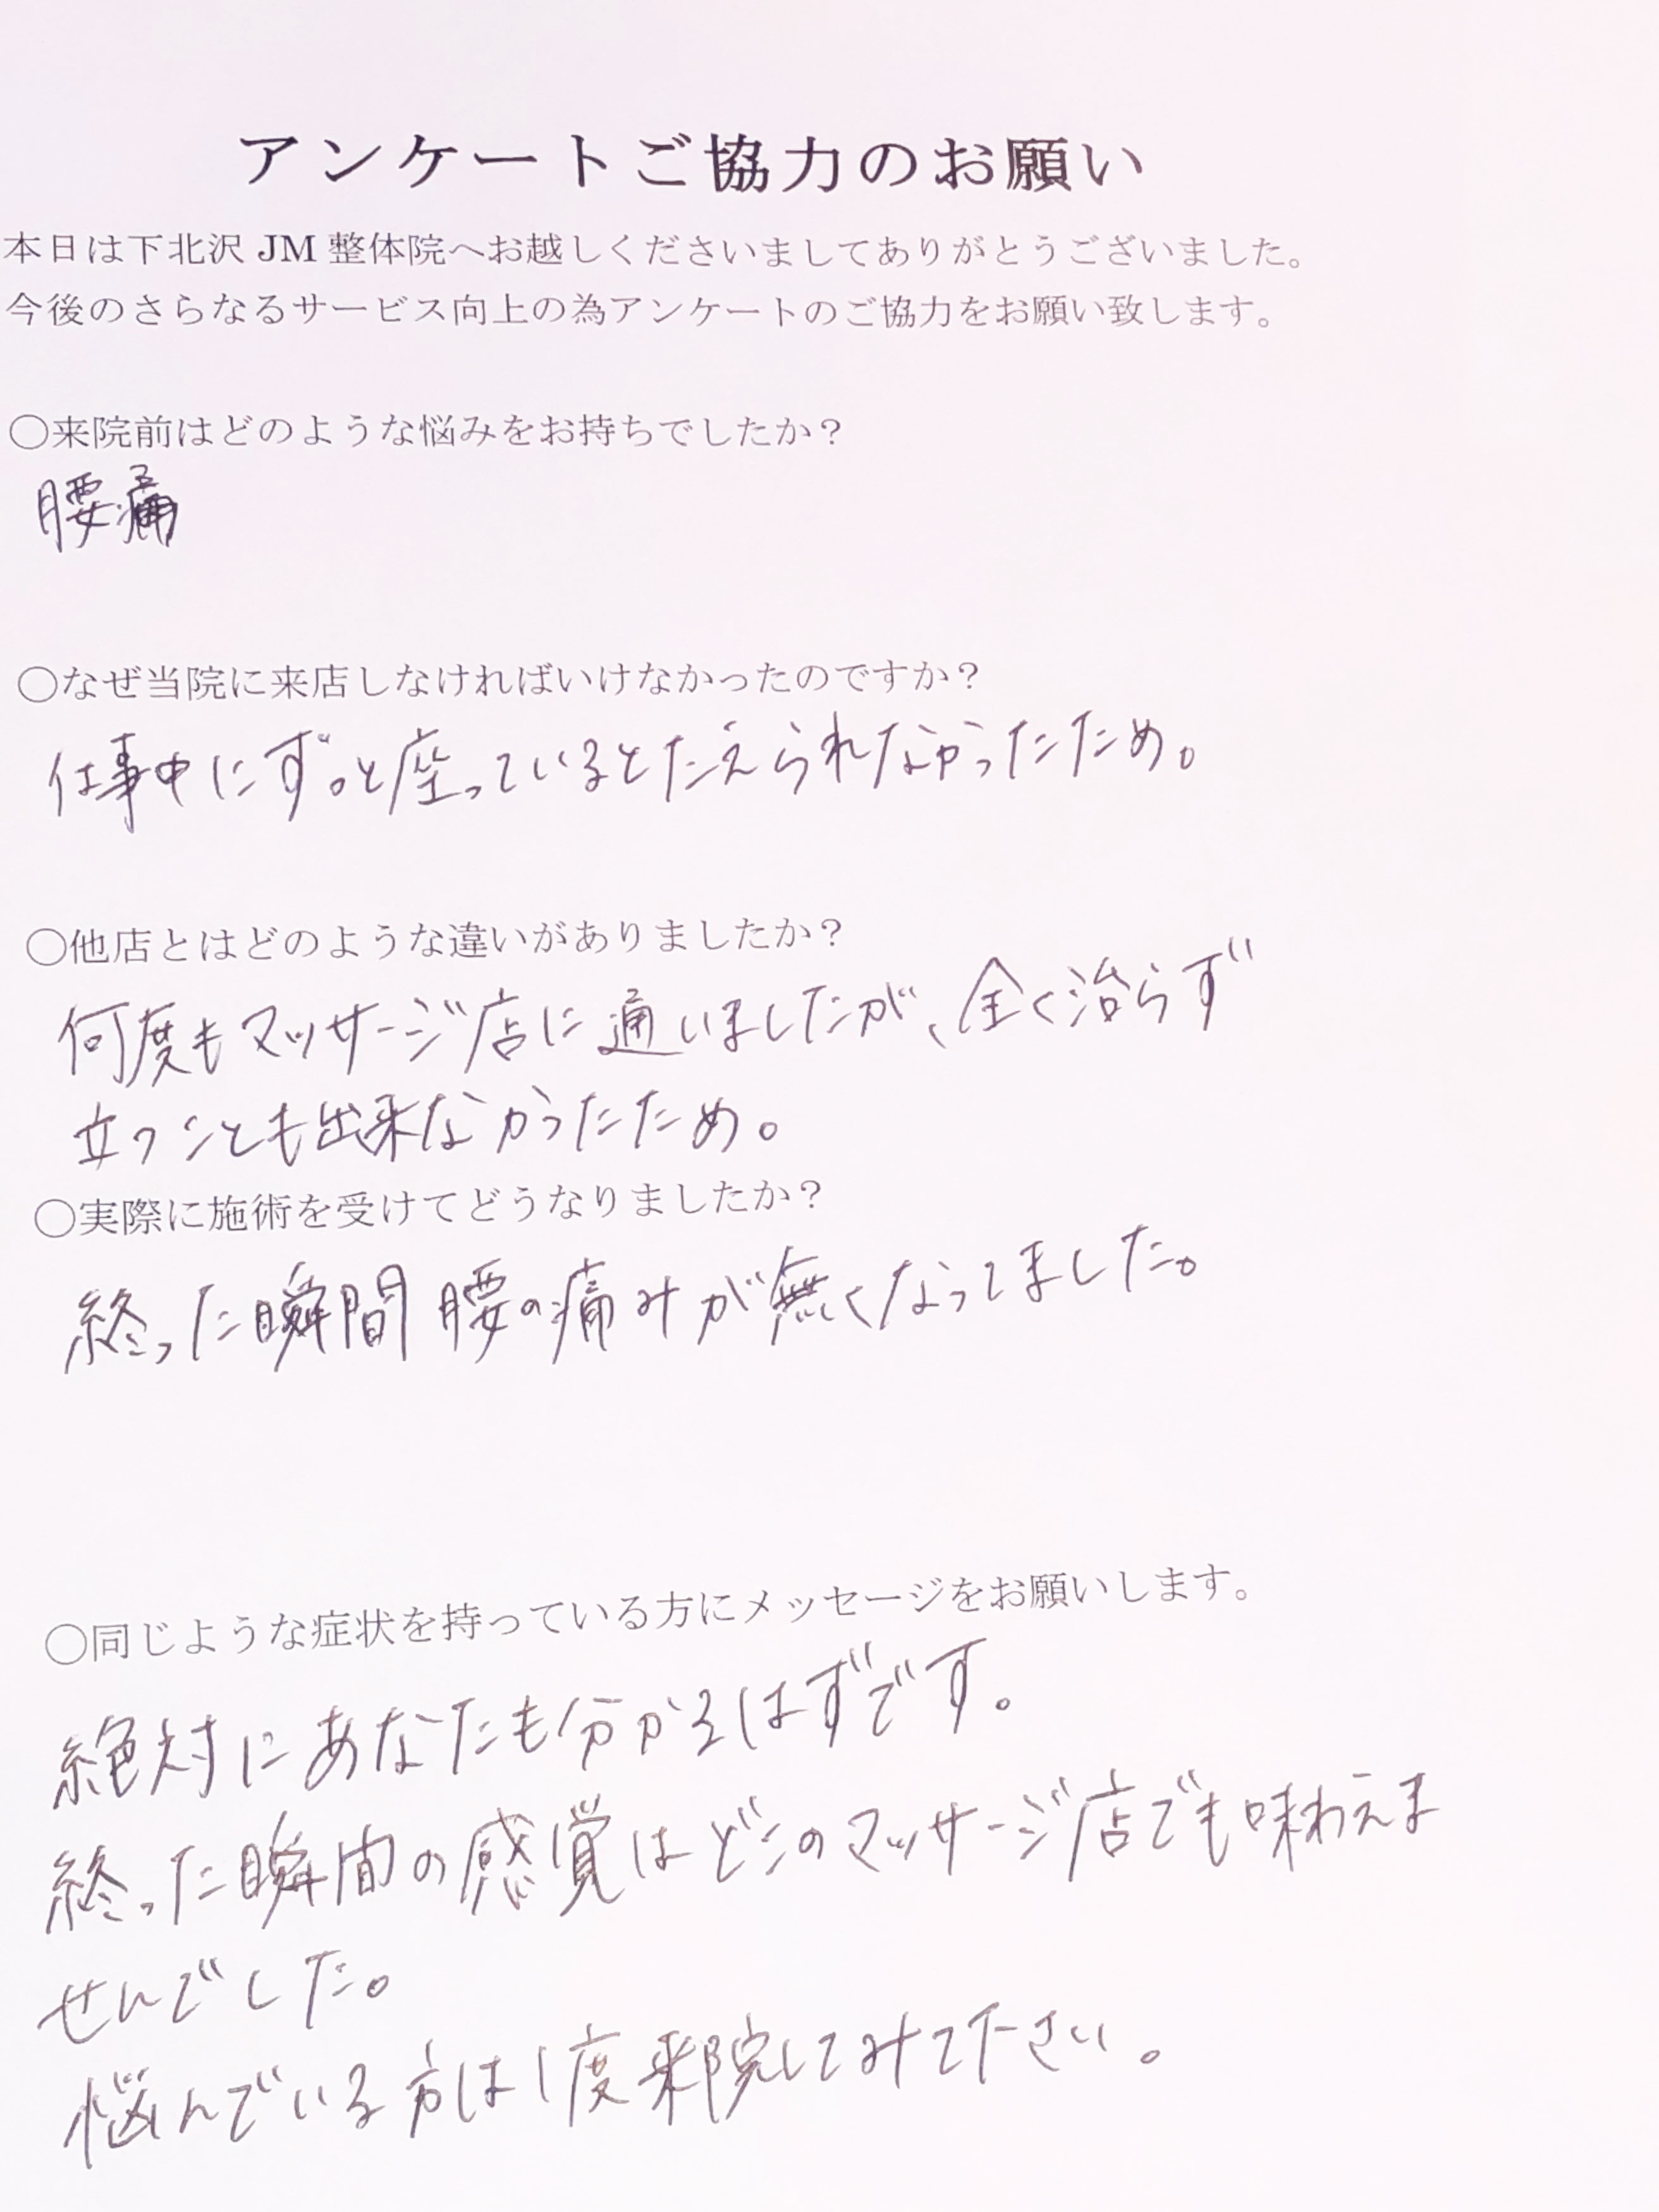 アンケートご協力のお願い
本日は下北沢 JM 整体院へお越しくださいましてありがとうございました。
今後のさらなるサービス向上の為アンケートのご協力をお願い致します。
○来院前はどのような悩みをお持ちでしたか?
腰痛
○なぜ当院に来店しなければいけなかったのですか?
仕事中にずっと座っているとたえられなかったため。
○他店とはどのような違いがありましたか?
何度もマッサージ店に通いましたが、全く治らず
立つことも出来なかったため。
○実際に施術を受けてどうなりましたか?
終った瞬間腰の痛みが無くなってました。
○同じような症状を持っている方にメッセージをお願いします。
絶対にあなたも分かるはずです。
終った瞬間の感覚はどこのマッサージ店でも味わえま
せんでした。
悩んでいる方は1度来院してみて下さい。